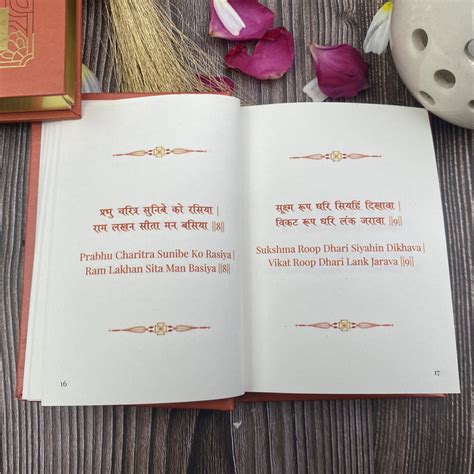 प्रभु चरित्र सुनिबे को रसिया |
राम लखन सीता मन बसिया ||8||
Prabhu Charitra Sunibe Ko Rasiya |
Ram Lakhan Sita Man Basiya ||8||
16
सूक्ष्म रूप धरि सियहिं दिखावा |
विकट रूप धरि लंक जरावा ||9||
Sukshma Roop Dhari Siyahin Dikhava |
Vikat Roop Dhari Lank Jarava ||9||
17